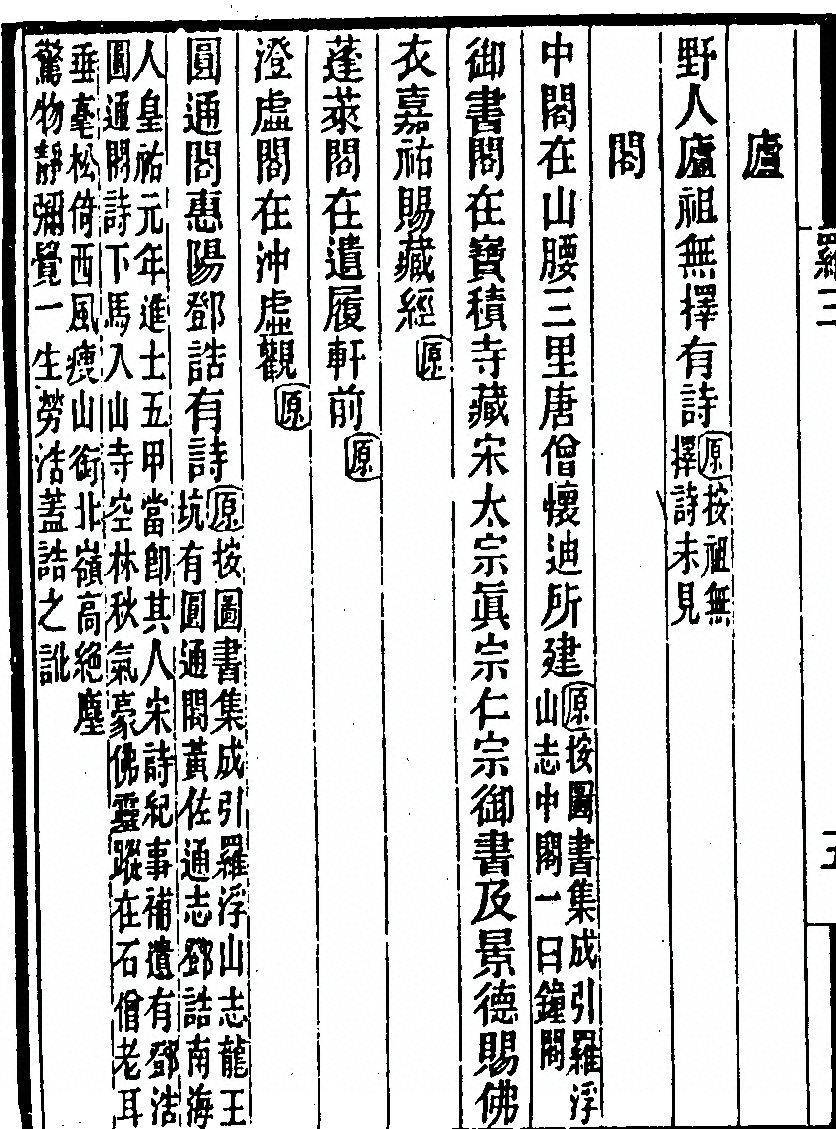 廬
野人廬祖無擇有詩原按祖無
擇詩未見
閣
中閣在山腰三里唐僧懷迪所建原按圖書集成引羅浮
山志中閣一曰鐘閣
御書閣在寶積寺藏宋太宗眞宗仁宗御書及景德賜佛
衣嘉祐賜藏經原
蓬萊閣在遺履軒前原
澄虛閣在沖虛觀原
圓通閣惠陽鄧誥有詩原按圖書集成引羅浮山志龍王
坑有圓通閣黃佐通志鄧誥南海
人皇祐元年進士五甲當卽其人宋詩紀事補遺有鄧浩
圓通閣詩下馬入山寺空林秋氣豪佛靈蹤在石僧老耳
垂毫松倚西風瘦山銜北嶺高絶塵
驚物靜彌覺一生勞浩蓋誥之訛
羅三
五